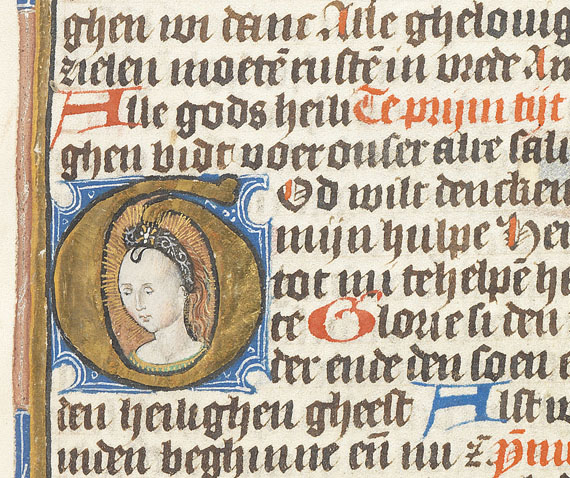 ghen wi danc Alle ghelouig
zielen moetē rustē in vrede An
Alle gods heili Te prijm tijt
ghen bidt voer onser alre sali
God wilt dencken
mijn hulpe Hee
tot mi te helpē he
re Glorie si den
der ende den soen e
den heilighen gheest Alst w
inden beghinne eñ nu z̄ p̄nu